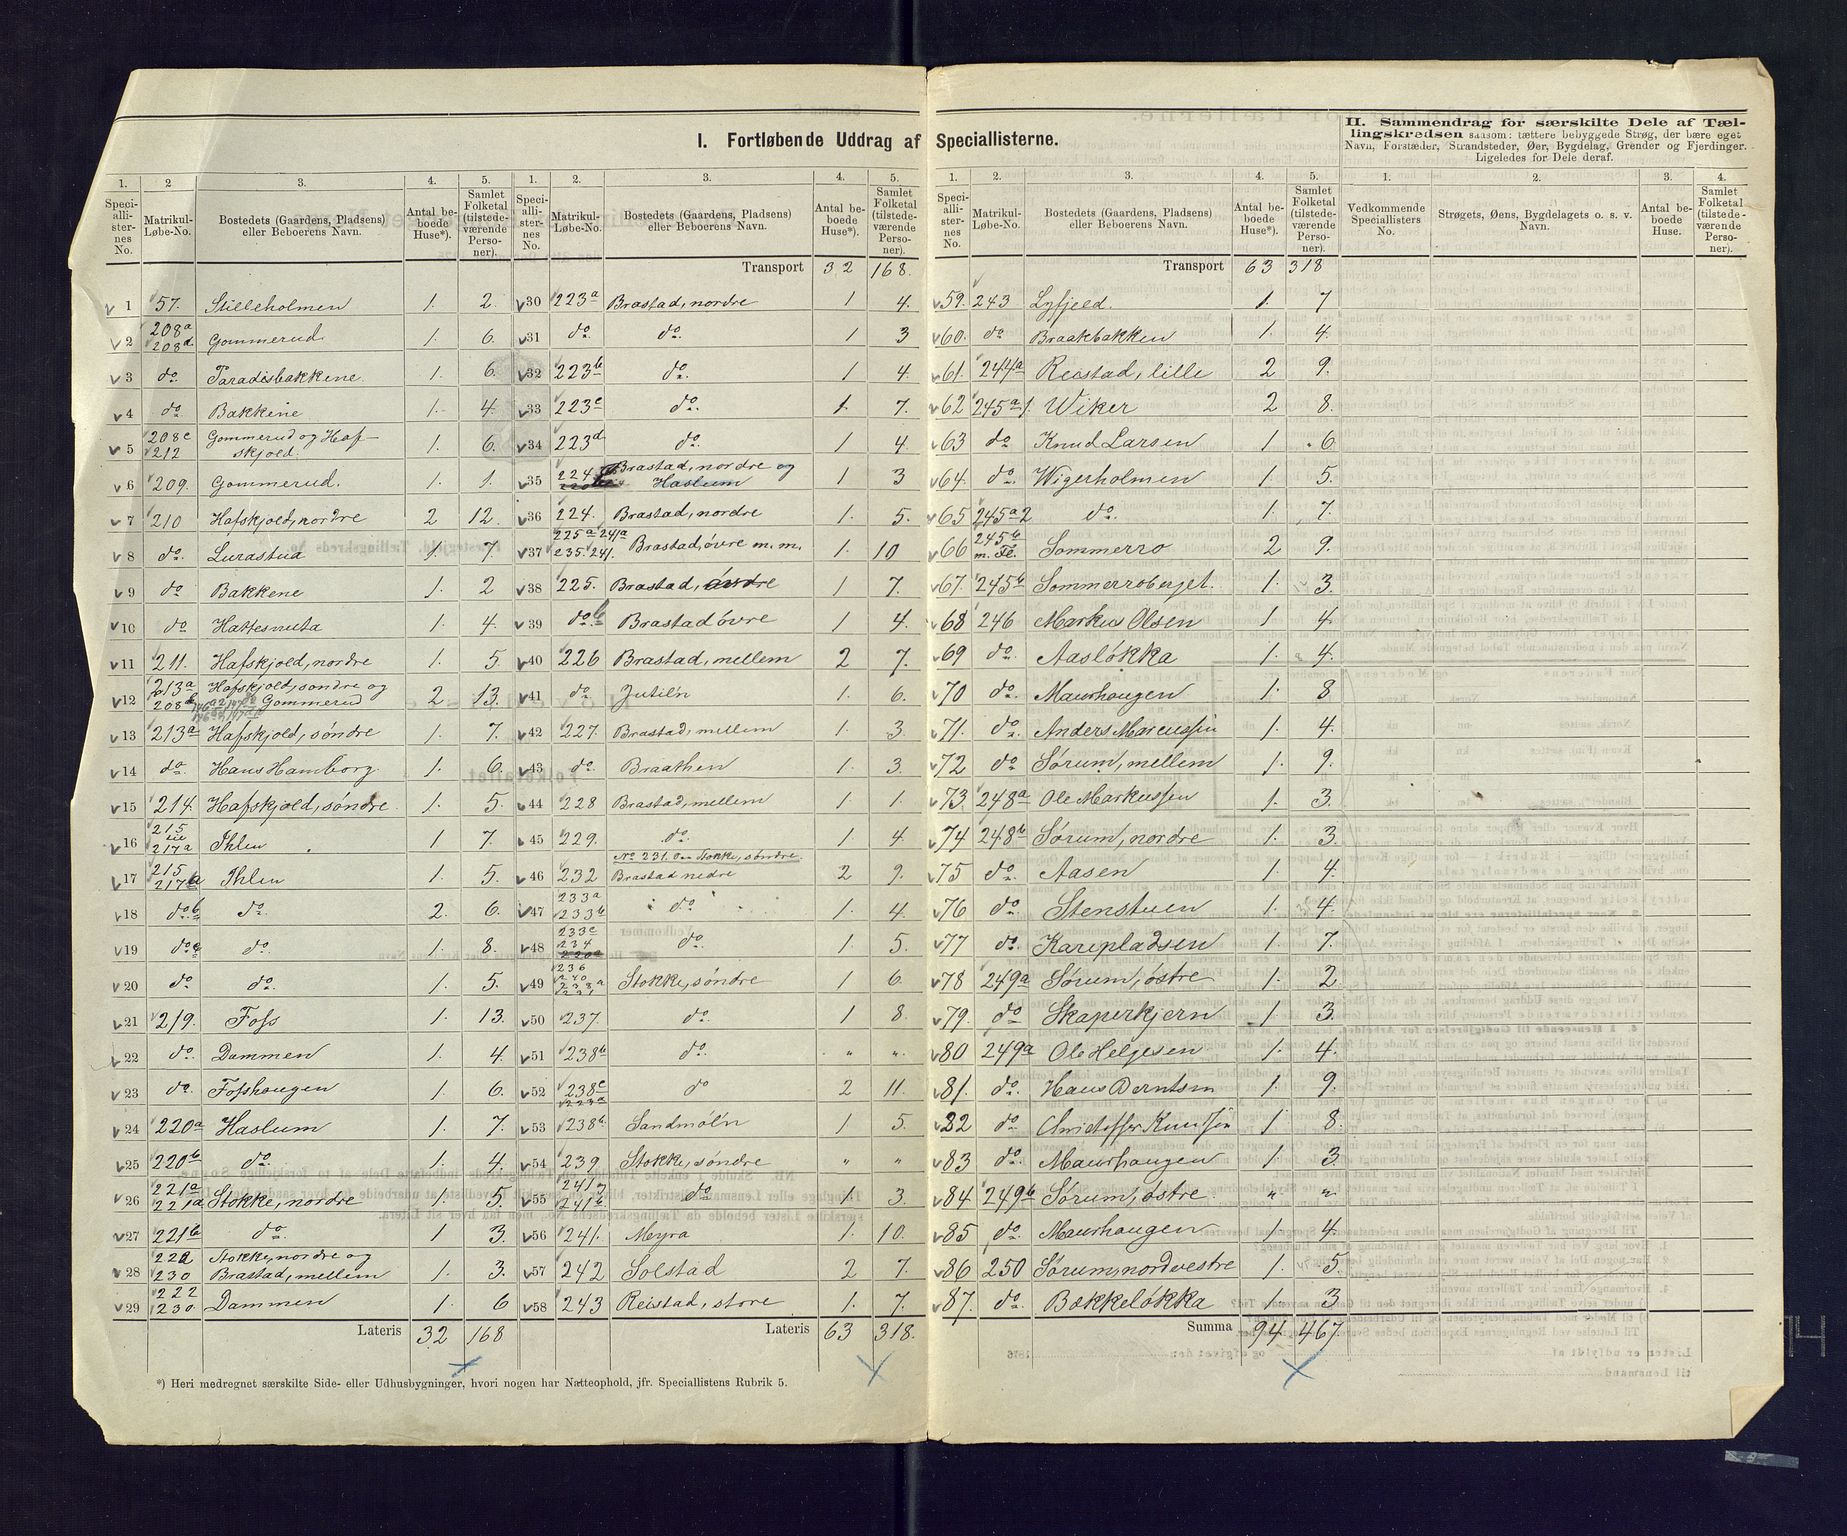 I. Fortløbende Uddrag af Speciallisterne.
II. Sammendrag for særskilte Dele af Tæl-
lingskredsen saasom: tættere bebyggede Strøg, der bære eget
Navn, Forstæder, Strandsteder, Øer, Bygdelag, Grender og Fjerdinger.
Ligeledes for Dele deraf.
1. 2 3. 4. 5.
Speciallisternes No. Matrikul-Løbe-No. Bostedets (Gaardens, Pladsens) eller Beboerens Navn. Antal beboede Huse*). Samlet Folketal (tilstedeværende Personer).
1 57. Stilleholmen 1. 2.
2 208a 208d Gommerud 1. 6.
3 do. Paradisbakkene 1. 6.
4 do. Bakkene 1. 4.
5 208c 212 Gommerud og Hafskjold. 1. 6.
6 209. Gommerud. 1. 1.
7 210 Hafskjold, nordre 2 12.
8 do. Lurastua 1. 7.
9 do Bakkene 1. 2
10 do Hattesnuta 1. 4.
11 211. Hafskjold, nordre 1. 5.
12 213a 208b Hafskjold, søndre og Gommerud 2. 13.
13 213a Hafskjold, søndre 1. 7.
14 do. Hans Hamborg. 1. 6.
15 214. Hafskjold, søndre. 1. 5.
16 215 til 217a Ihlen 1 7.
17 215 217a Ihlen 1. 5.
18 do. b do. 2. 6.
19 do. c do. 1. 8.
20 do do. 1. 5.
21 219. Foss 1. 13.
22 do. Dammen 1. 4.
23 do. Fosshaugen 1. 6.
24 220a Haslum 1. 7.
25 220b do. 1. 4.
26 221a 221a Stokke, nordre 1. 5.
27 221b do. 1 3.
28 222 230 Stokke, nordre og Brastad, mellem 1. 3.
29 222 230. Dammen 1. 6
Lateris 32 168
*) Heri medregnet særskilte Side- eller Udhusbygninger, hvori nogen har Natteophold, jfr. Speciallistens Rubrik 5.
1. 2. 3. 4. 5.
Speciallisternes No. Matrikul-Løbe-No. Bostedets (Gaardens, Pladsens) eller Beboerens Navn. Antal beboede Huse*). Samlet Folketal (tilstedeværende Personer).
Transport 32 168.
30 223a Brastad, nordre 1 4.
31 do. do. 1 3
32 223b do. 1 4.
33 223c do. 1. 7.
34 223d do. 1 4.
35 224 Brastad, nordre og Haslum 1 3
36 224. Brastad, nordre 1. 5.
37 225a 241a 235. 241. Brastad, øvre m. m. 1. 10
38 225. Brastad, øvre 1 7.
39 do. b Brastad øvre 1 4.
40 226 Brastad, mellem 2 7.
41 do. Jutiln 1. 6.
42 227. Brastad, mellem 1. 3.
43 do. Braathen 1. 3.
44 228 Brastad, mellem 1. 1.
45 229. do. 1 4.
46 232 No 231. Om Stokke, søndre. Brastad nedre 2 9.
47 233a 233b do. 1. 4.
48 233c 234 do. 1 5.
49 236 240 238a 231 Stokke, søndre 1 6.
50 237. do. 1 8.
51 238b do. " ".
52 238c 223a do 2 11.
53 238b. Sandmøln 1 5.
54 239 Stokke, søndre " "
55 241 241b do. 1. 3.
56 241. Myra 1. 10.
57 242 Solstad 2 7.
58 243 Reistad, store 1. 7.
Lateris 63 318.
1. 2. 3. 4. 5.
Speciallisternes No. Matrikul-Løbe-No. Bostedets (Gaardens, Pladsens) eller Beboerens Navn. Antal beboede Huse*). Samlet Folketal (tilstedeværende Personer).
Transport 63 318
59. 243 Lyfjeld 1. 7
60. do. Braakbakken 1. 4.
61. 244a Reistad, lille 2 9.
62 245a 1. Wiker 2 8.
63 do. Knud Larsen 1 6.
64. do. Wigerholmen 1 5.
65 245a 2 do. 1. 7.
66 245b m. Fl. Sommerro 2 9.
67. 245b Sommerroberget. 1. 3.
68 246 Markus Olsen 1 4.
69 do. Aasløkka 1. 4.
70 do. Maurhaugen 1. 8
71. do. Anders Marcussen 1. 4.
72 do Sørum, mellem 1. 9.
73. 248a Ole Markussen 1. 3.
74 248b Sørum, nordre 1. 3.
75 do. Aasen 1 4.
76 do. Stenstuen 1. 4.
77 do. Karepladsen 1. 7.
78 249a Sørum, østre 1. 2
79. do Skaperkjern 1 3.
80 249a Ole Helgesen 1. 4.
81. do. Hans Berntsen 1. 9.
82 do. Christoffer Knudsen 1 8.
83 do. Maurhaugen 1 3.
84 249b Sørum, østre. " "
85 do. Maurhaugen 1. 4
86 250 Sørum, nordvestre 1. 5.
87. do. Bækkeløkka 1. 3
Summa 94 467.
1. 2. 3. 4.
Vedkommende Speciallisters No. Strøgets, Øens, Bygdelagets o. s. v. Navn. Antal beboede Huse. Samlet Folketal (tilstedeværende Personer).
14